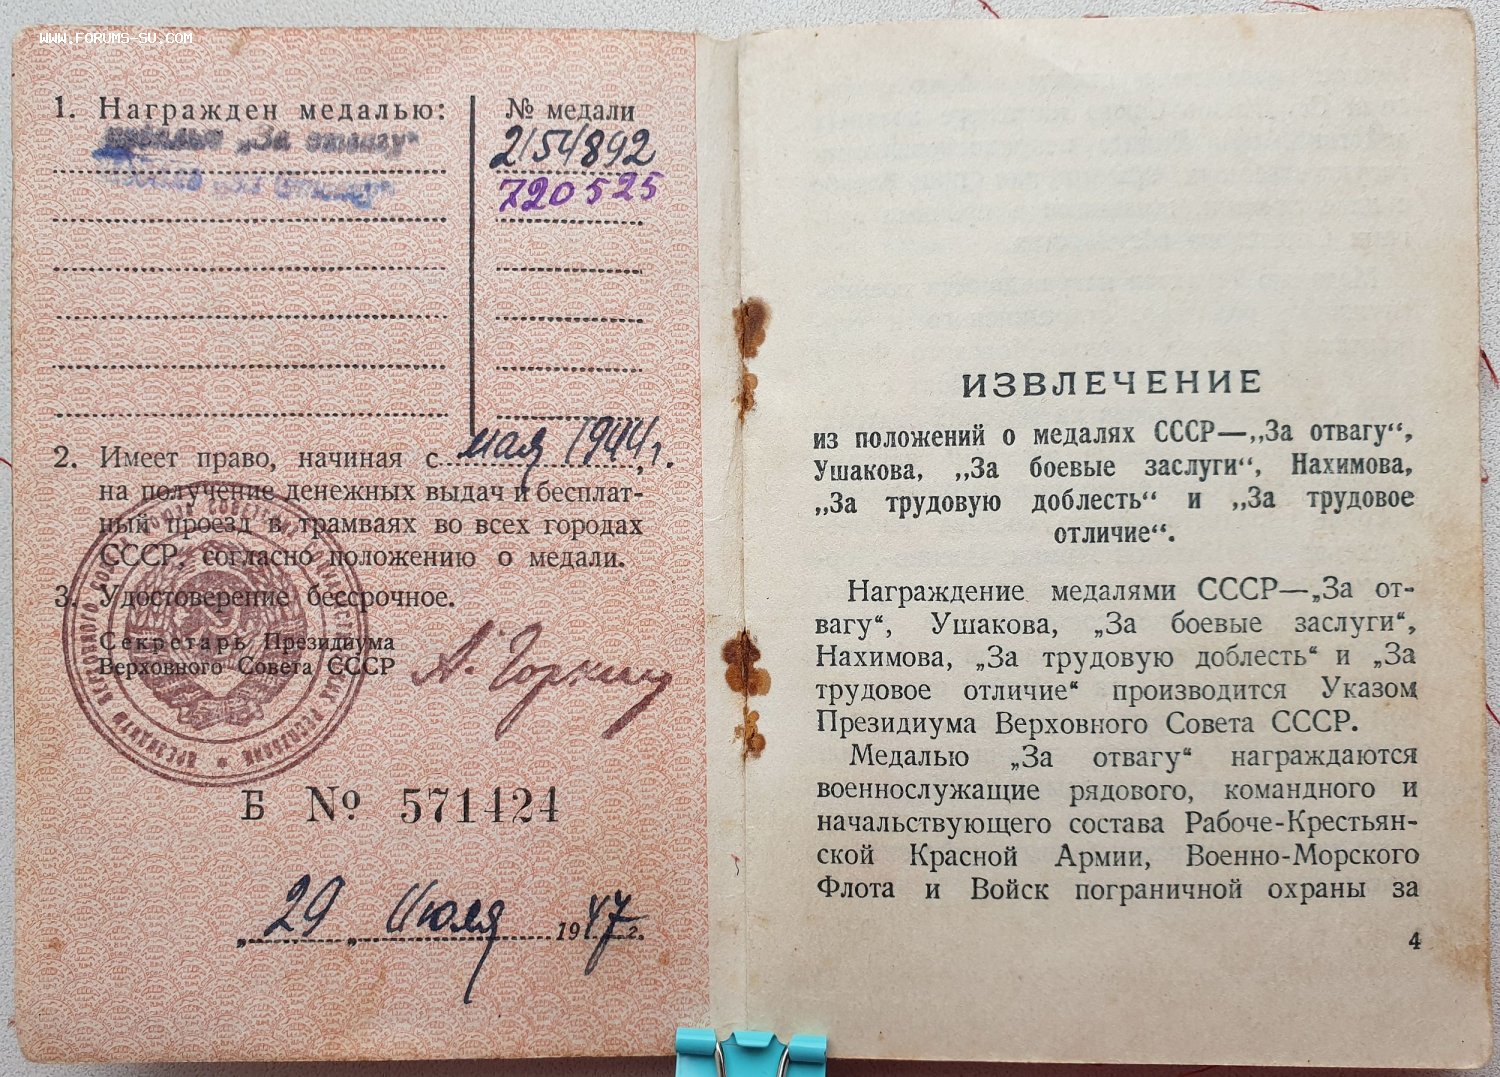 WWW.FORUMS-SU.COM
1. Награжден медалью:
№ медали
медалью „За отвагу“
2154892
„За отвагу“
720525
2. Имеет право, начиная с мая 1944 г.
на получение денежных выдач и бесплат-
ный проезд в трамваях во всех городах
СССР, согласно положению о медали.
3. Удостоверение бессрочное.
Секретарь Президиума
Верховного Совета СССР
А. Горкин
ПРЕЗИДИУМ ВЕРХОВНОГО СОВЕТА СОЮЗА СОВЕТСКИХ РЕСПУБЛИК
Б № 571424
„29“ Июля 1947 г.
ИЗВЛЕЧЕНИЕ
из положений о медалях СССР—„За отвагу“,
Ушакова, „За боевые заслуги“, Нахимова,
„За трудовую доблесть“ и „За трудовое
отличие“.
Награждение медалями СССР—„За от-
вагу“, Ушакова, „За боевые заслуги“,
Нахимова, „За трудовую доблесть“ и „За
трудовое отличие“ производится Указом
Президиума Верховного Совета СССР.
Медалью „За отвагу“ награждаются
военнослужащие рядового, командного и
начальствующего состава Рабоче-Крестьян-
ской Красной Армии, Военно-Морского
Флота и Войск пограничной охраны за
4